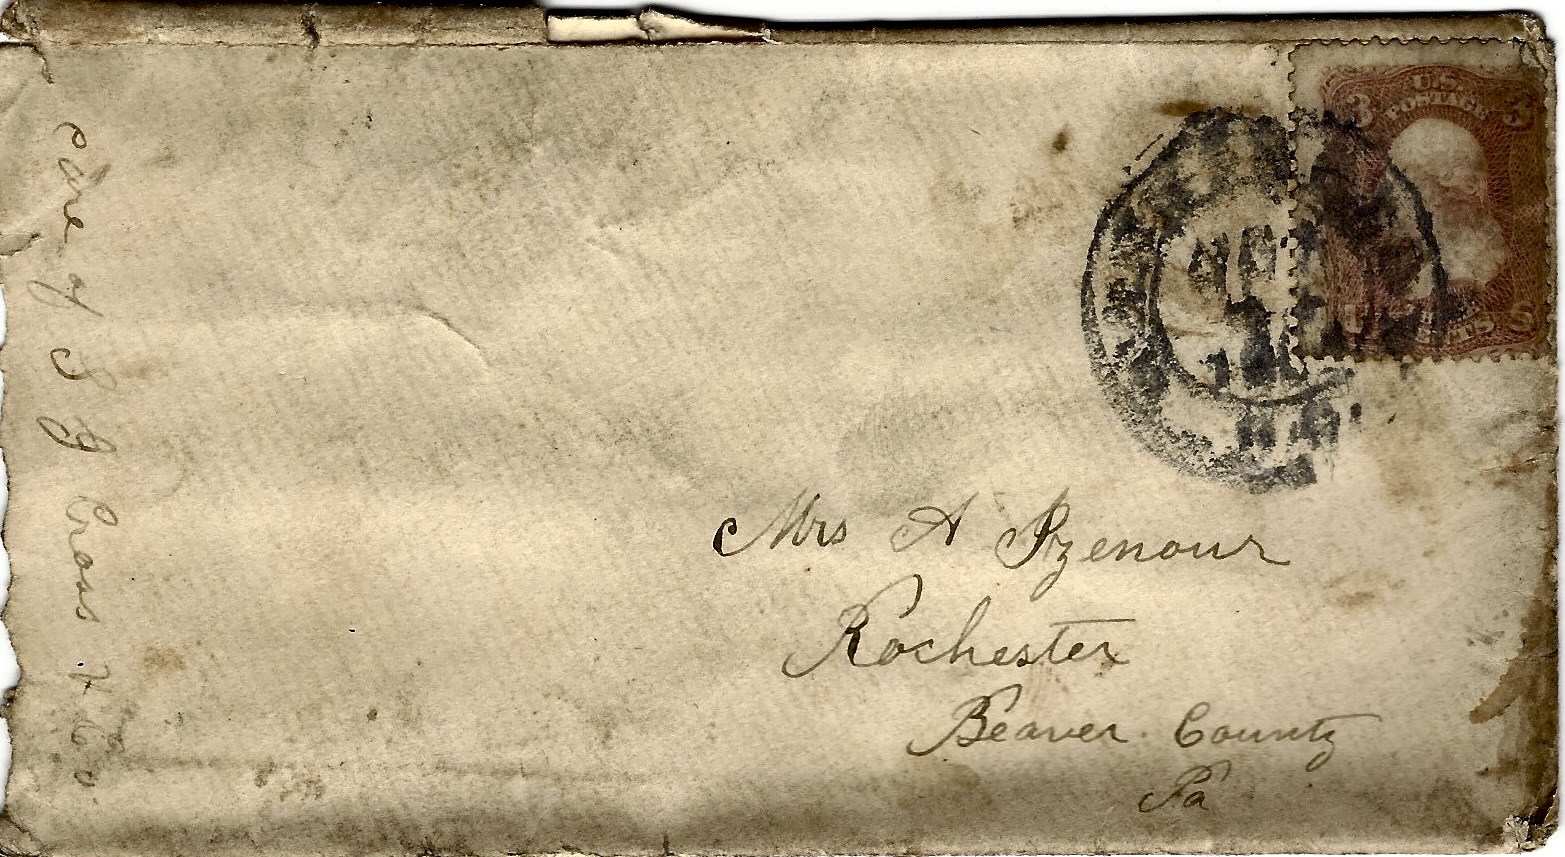 U.S.
POSTAGE
3 3
care of S J Cross & Co
Mrs A Izenour
Rochester
Beaver County
Pa